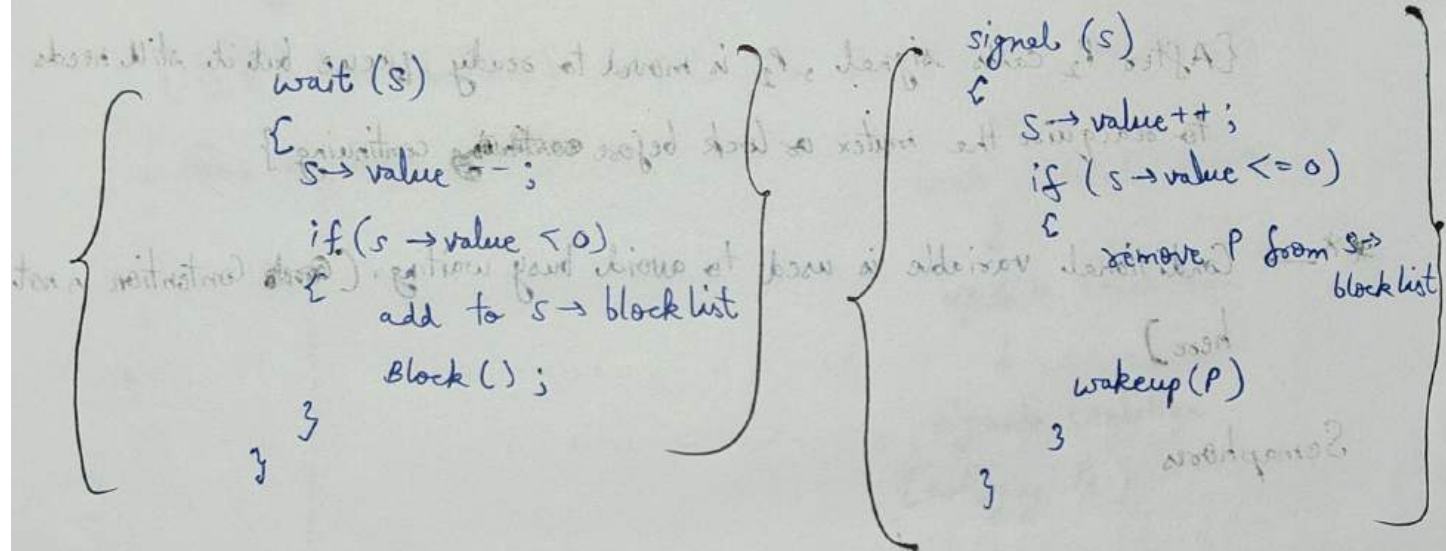 wait (S)
{
s → value --;
if (s → value < 0)
{
add to s → block list
Block ( ) ;
}
}
signal (s)
{
s → value ++ ;
if ( s → value <= 0)
{
remove P from s →
block list
wakeup (P)
}
}